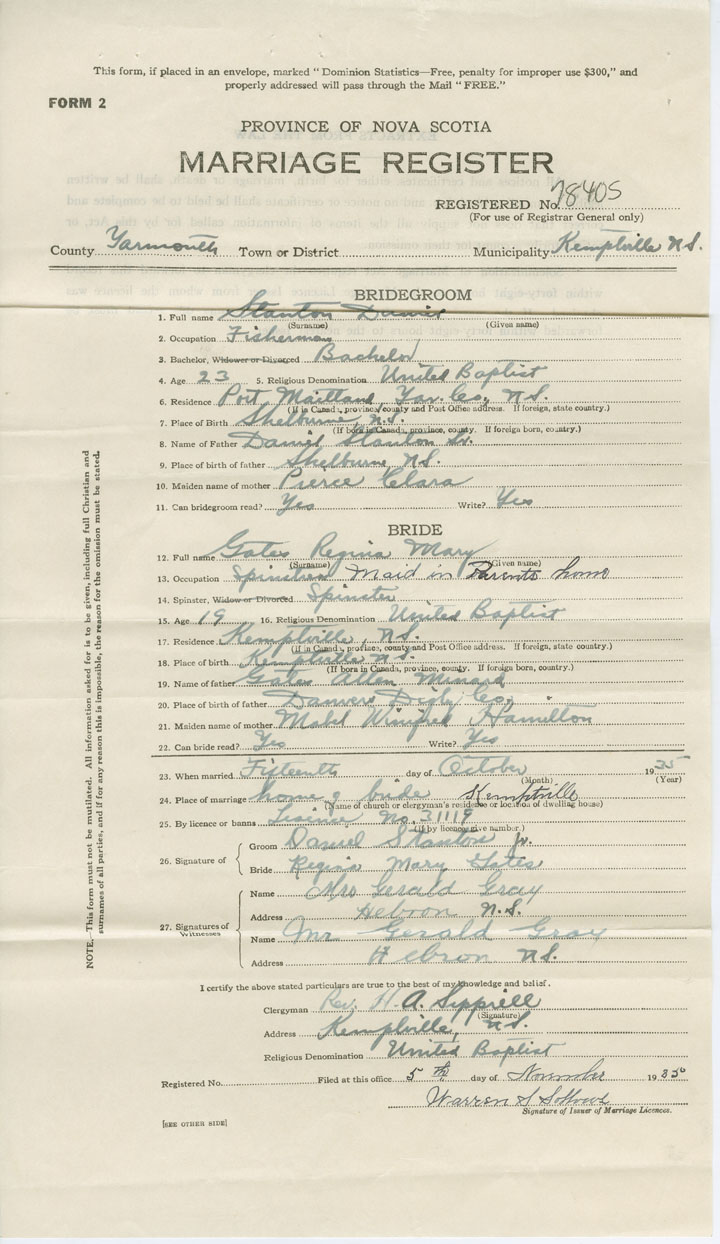 This form, if placed in an envelope, marked "Dominion Statistics—Free, penalty for improper use $300," and
properly addressed will pass through the Mail "FREE."
FORM 2
PROVINCE OF NOVA SCOTIA
MARRIAGE REGISTER
REGISTERED No. 78405
(For use of Registrar General only)
County Yarmouth Town or District Municipality Kemptville N.S.
BRIDEGROOM
1. Full name Stanton Daniel
(Surname) (Given name)
2. Occupation Fisherman
3. Bachelor, Widower or Divorced Bachelor
4. Age 23 5. Religious Denomination United Baptist
6. Residence Port Maitland Yar. Co., N.S.
(If in Canada, province, county and Post Office address. If foreign, state country.)
7. Place of Birth Shelburne, N.S.
(If born in Canada, province, county. If foreign born, country.)
8. Name of Father Daniel Stanton Sr.
9. Place of birth of father Shelburne, N.S.
10. Maiden name of mother Pierce Clara
11. Can bridegroom read? Yes Write? Yes
BRIDE
12. Full name Gates Regina Mary
(Surname) (Given name)
13. Occupation Spinster Maid in Parents home
14. Spinster, Widow or Divorced Spinster
15. Age 19 16. Religious Denomination United Baptist
17. Residence Kemptville, N.S.
(If in Canada, province, county and Post Office address. If foreign, state country.)
18. Place of birth Kemptville N.S.
(If born in Canada, province, county. If foreign born, country.)
19. Name of father Gates Allan Minard
20. Place of birth of father Danvers Digby Co.,
21. Maiden name of mother Mabel Winifred Hamilton
22. Can bride read? Yes Write? Yes
23. When married Fifteenth day of October 1935
(Month) (Year)
24. Place of marriage home of bride Kemptville
(Name of church or clergyman's residence or location of dwelling house)
25. By licence or banns Lisince No. 31119
(If by licence give number.)
26. Signature of
Groom Daniel Stanton Jr.
Bride Regina Mary Gates
27. Signatures of Witnesses
Name Mrs Gerald Gray
Address Hebron N.S.
Name Mr. Gerald Gray
Address Hebron N.S.
I certify the above stated particulars are true to the best of my knowledge and belief.
Clergyman Rev. H. A. Sipprell
(Signature)
Address Kemptville, N.S.
Religious Denomination United Baptist
Registered No. Filed at this office 5th day of November 1935
Warren S
Signature of Issuer of Marriage Licences.
[SEE OTHER SIDE]
NOTE.—This form must not be mutilated. All information asked for is to be given, including full Christian and
surnames of all parties, and if for any reason this is impossible, the reason for the omission must be stated.